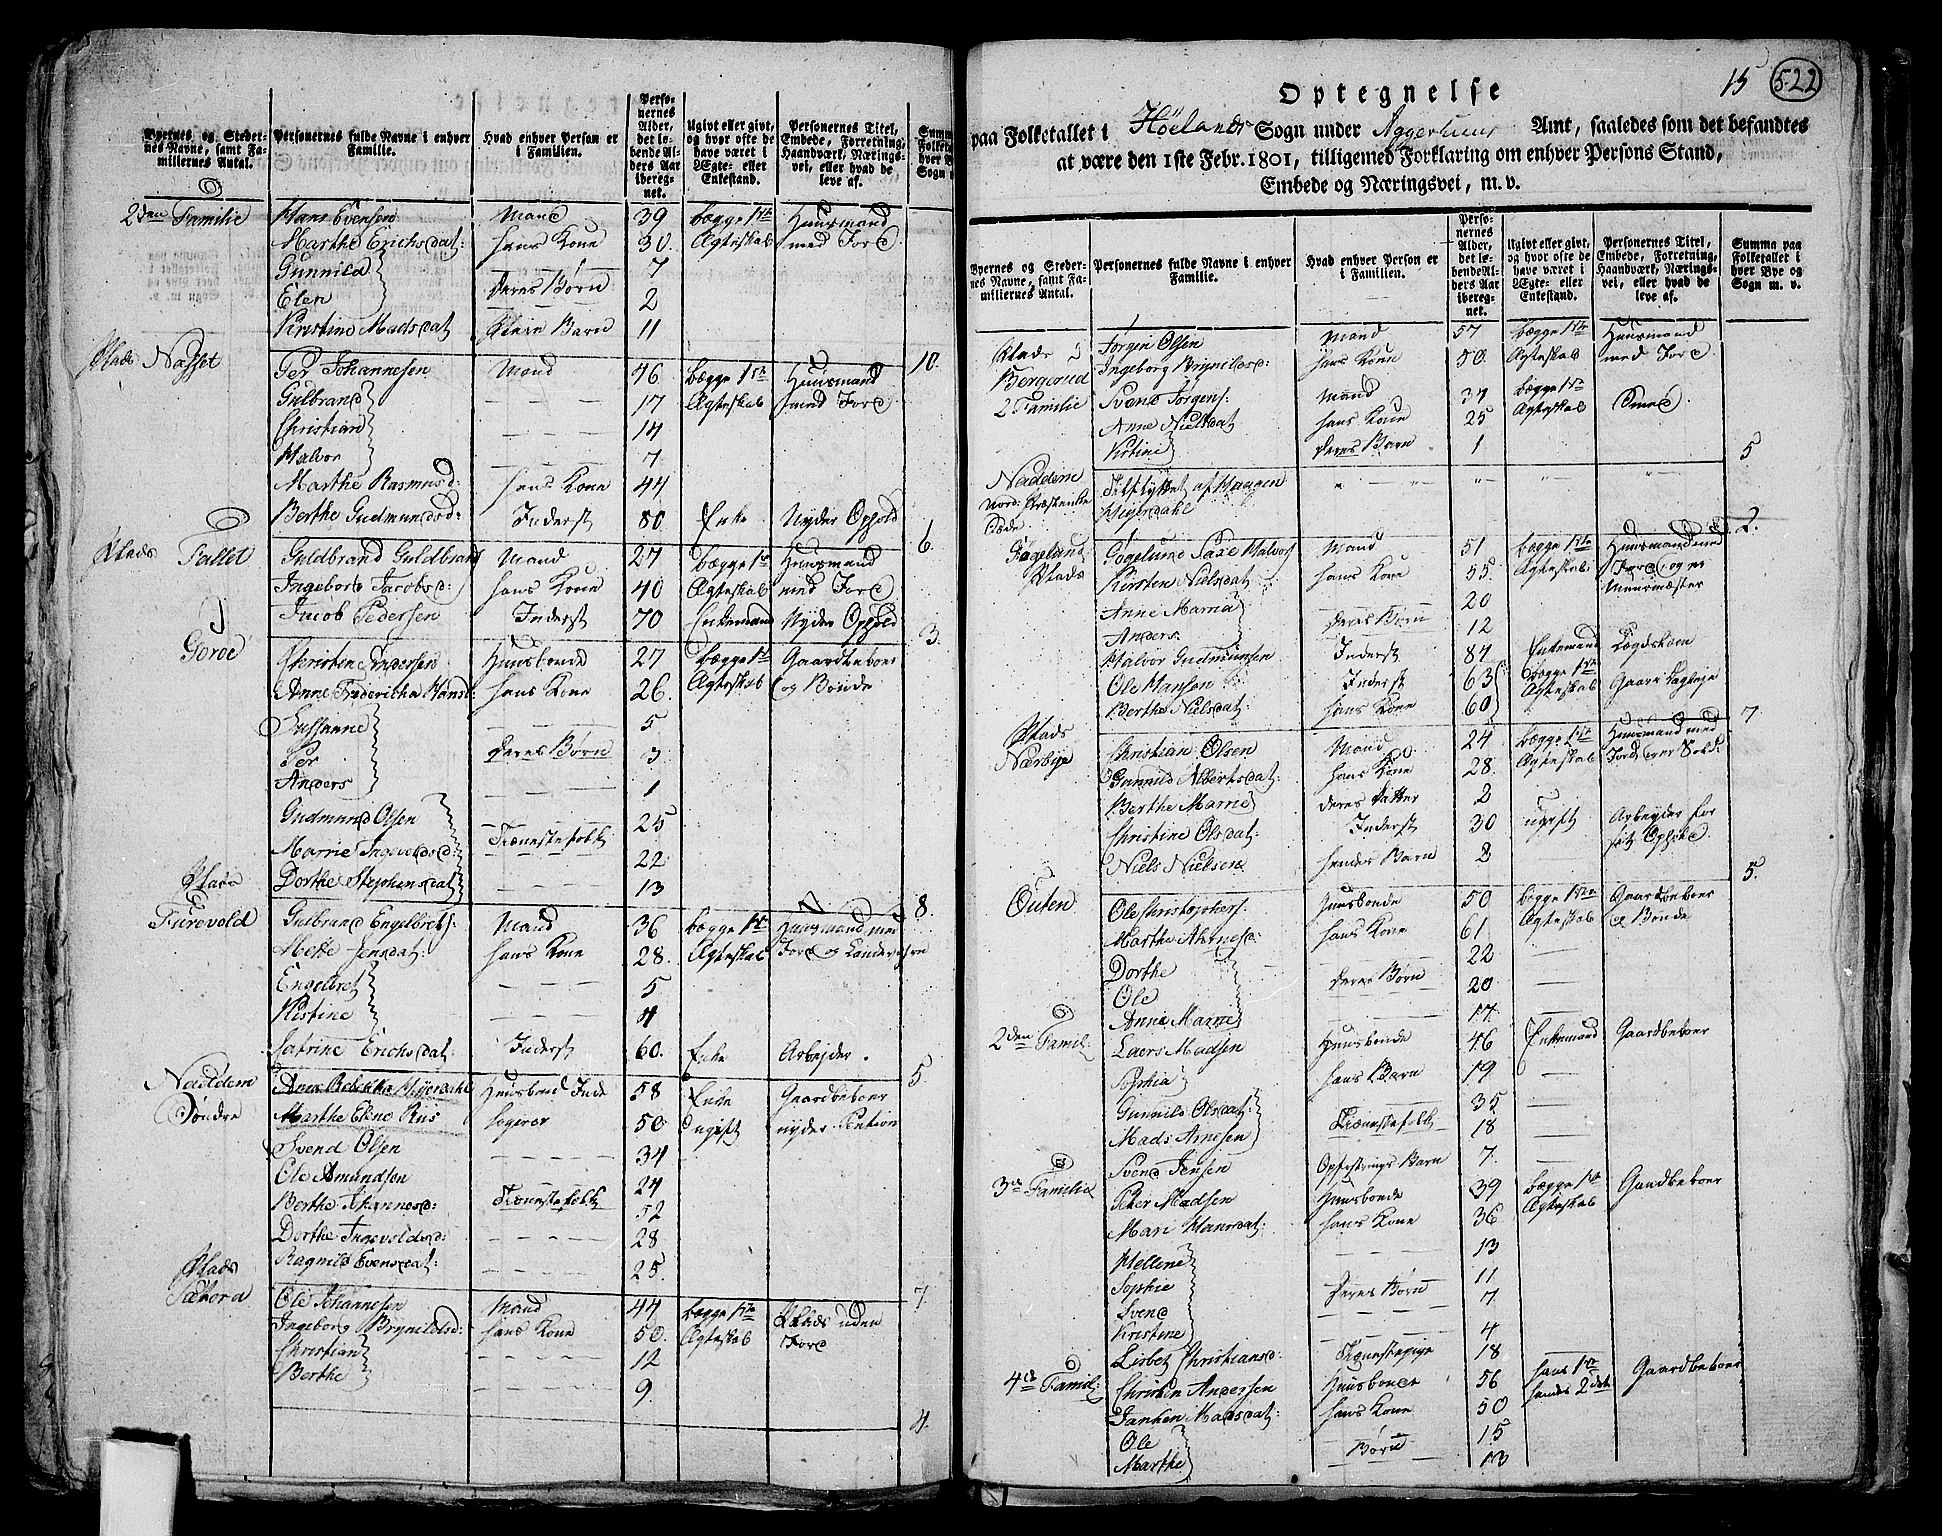 Byernes og Steder- nes Navne, samt Fa- milliernes Antal. | Personernes fulde Navne i enhver Familie. | Hvad enhver Person er i Familien. | Perso- nernes Alder, det le- bende Al- ders Aar iberegnet. | Ugivt eller givt, og hvor ofte de have været i Ægte- eller Enkestand. | Personernes Titel, Embede, Forretning, Haandværk, Nærings- vei, eller hvad de leve af.
2den Familie | Hans Evensen | Mand | 39 | begge 1ste | Huusmand
Marthe Erichsdat: | hans Kone | 30. | Ægteskab | med Jord
Gunnild | 7
Elen | deres Børn | 2
Kirstine Madsdat | Barn | 11
Plads Nasset | Per Johannesen | Mand | 46 | begge 1ste | Huusmand | 10.
Gulbrand | 17 | Ægteskab | med Jord
Christian | 14
Halvor | 7
Marthe Rasmusd: | hans Kone | 44
Berthe Gudmundsd: | Inderst | 80 | Enke | Nyder Ophold
Plads Fallet | Guldbrand Guldbrands | Mand | 27 | begge 1ste | Huusmand | 6.
Ingeborg Jacobsd: | hans Kone | 40 | Ægteskab | med Jord
Jacob Pedersen | Inderst | 70 | Enkemand | Nyder Ophold
Christen Andersen | Huusbonde | 27 | begge 1ste | Gaardbeboer | 3.
Anne Fridericha Hansd | hans Kone | 26. | Ægteskab | og Bonde
Sussanne | 5
Per | deres Børn | 3
Anders | 1
Gudmund Olsen | 25
Marrie Ingevoldsd: | Tiænistefolk | 22
Dorthe Stephensdat | 13
Plads Furevold | Gulbrand Engelbrets: | Mand | 36 | begge 1ste | Huusmand med | 8.
Mette Jensdat: | hans Kone | 28. | Ægteskab | Jord og
Engelbret | 5
Kistine | 4
Catrine Erichsdat: | Inderst | 60. | Enke | Arbejder.
Naddem | Anne Rebekka Hiyerdahl | 58 | Enke | Gaardbeboer | 5
Søndre | Marthe Elene Rus | Logerer | 50 | Ungift | nyder Pention
Svend Olsen | 34
Ole Amundsen | 24
Berthe Johannesd: | Tiænistefolk | 52
Dorthe Ingevoldsd: | 28
Ragnild Evensdat: | 25.
Plads | Ole Johannesen | Mand | 44 | begge 1ste | Plads uden | 7.
Ingeborg Brynildsd: | hans Kone | 50. | Ægteskab | Jord
Christian | 12
Berthe | 9.
4.
15 522
Optegnelse
paa Folketallet i Høelands Sogn under Aggerhuus Amt, saaledes som det befandtes
at være den 1ste Febr. 1801, tilligemed Forklaring om enhver Persons Stand,
Embede og Næringsvei, m. v.
Byernes og Steder- nes Navne, samt Fa- miliernes Antal. | Personernes fulde Navne i enhver Familie. | Hvad enhver Person er i Familien. | Perso- nernes Alder, det le- bende Al- ders Aar iberegnet. | Ugivt eller givt, og hvor ofte de have været i Ægte- eller Enkestand. | Personernes Titel, Embede, Forretning, Haandværk, Nærings- vei, eller hvad de leve af. | Summa paa Folketallet i hver Bye og Sogn m. v.
Plads | Jørgen Olsen | Mand | 57 | begge 1ste | Huusmand
Bergerud | Ingeborg Brynilds: | hans Kone | 50. | Ægteskab | med Jord
2 Familie | Svend Jørgens: | Mand | 37 | begge 1ste
Anne Nielsdat | hans Kone | 25 | Ægteskab | Smed
Kistine | deres Barn | 1 | 5
Naddem | Tilflyttet af Haagen
Nord: | Hiyerdahl | 2.
Plads | Halvors | Mand | 51 | begge 1ste | Huusmand med
Kirsten Nielsdat | hans Kone | 55. | Ægteskab | Jord og er
Anne Marria | 20 | Muurmæster
Anders | deres Børn | 12
Halvor Gudmunsen | Inderst | 87 | Enkemand | Lægdslem
Ole Hansen | Inderst | 63 | begge 1ste
Berthe Nielsdat: | hans Kone | 60 | Ægteskab | 7
Plads | Christian Olsen | Mand | 24 | begge 1ste | Huusmand med
Nærbye | Gunnild Albertsdat: | hans Kone | 28. | Ægteskab | Jord er Sold:
Berthe Marrie | deres Datter | 2
Christine Olsdat: | Inderst | 30 | ugift | Arbeyder for
Niels Nielsen | hendes Barn | 2 | sit Ophold. | 5.
Outen | Ole Christophers: | Huusbonde | 50 | begge 1ste | Gaardbeboer
Marthe Arnesd: | hans Kone | 61 | Ægteskab | og Bonde
Dorthe | 22
Ole | deres Børn | 20
Anne Marrie | 17
2den Famil: | Laers Madsen | Huusbonde | 46 | Enkemand | Gaardbeboer
Sophia | hans Barn | 19
Gunnild Olsdat: | 35
Mads Arnesen | Tiænistefolk | 18
Svend Jensen | Opfostrings Barn | 7.
3de Familie | Peter Madsen | Huusbonde | 39 | begge 1ste | Gaardbeboer
Mari Hansdat: | hans Kone | 36 | Ægteskab
Hellene | 13
Sophie | 11
Svend | deres Børn | 7
Kristine | 4
Lisbet Christiansd: | Tiænistepige | 18
4de Famil: | Christen Andersen | Huusbonde | 56 | hans 1ste | Gaardbeboer
Madsdat: | hans Kone | 50 | hendes 2det
Ole | 15
Marthe | Børn | 13